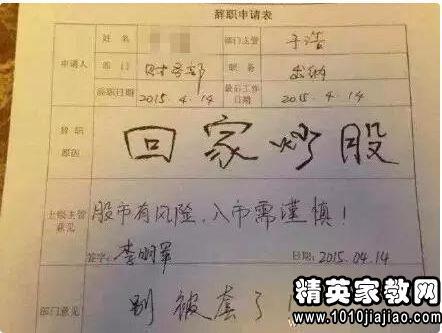 辞职申请表
姓名 部门主管 于浩
申请人 部门 财务部 职务 出纳
辞职日期 2015.4.14 最后工作日期 2015.4.14
辞职原因 回家炒股
上级主管意见 股市有风险、入市需谨慎!
签字: 李明军 日期: 2015.04.14
部门意见 别被套了!
精英家教网
www.1010jiajiao.com